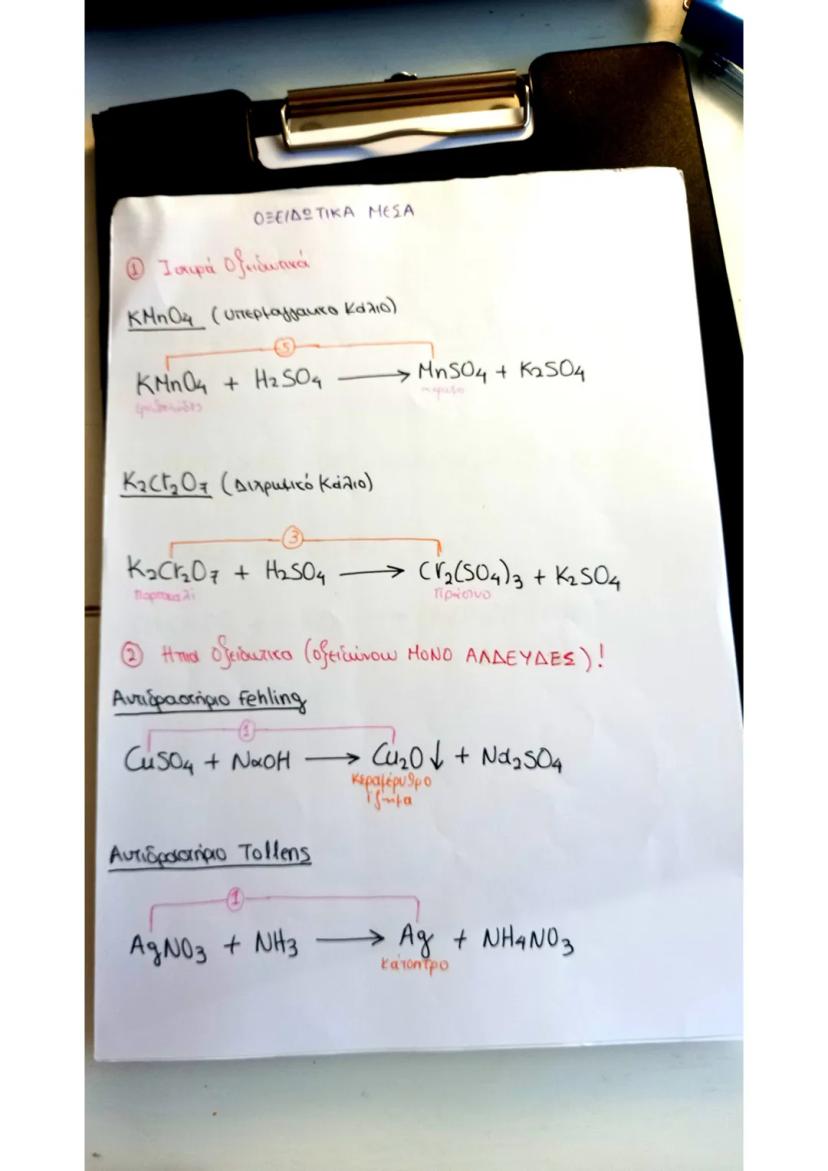 ΟΞΕΙΔΩΤΙΚΑ ΜΕΣΑ
① Ισχυρά Οξειδωτικά
KMnO4 (υπερμαγγανικο κάλιο)
5
KMnO4 + H2SO4 ⟶ MnSO4 + K2SO4
K2Cr2O7 (Διχρωμικό κάλιο)
3
K2Cr2O7 + H2SO4 ⟶ Cr2(SO4)3 + K2SO4
Πορτοκαλί Πράσινο
② Ηπια Οξειδωτικα (οξειδώνουν ΜΟΝΟ ΑΛΔΕΥΔΕΣ)!
Αντιδραστήριο Fehling
1
CuSO4 + NaOH ⟶ Cu2O↓ + Na2SO4
κεραμέρυθρο
ίζημα
Αντιδραστήριο Tollens
1
AgNO3 + NH3 ⟶ Ag + NH4NO3
κάτοπτρο